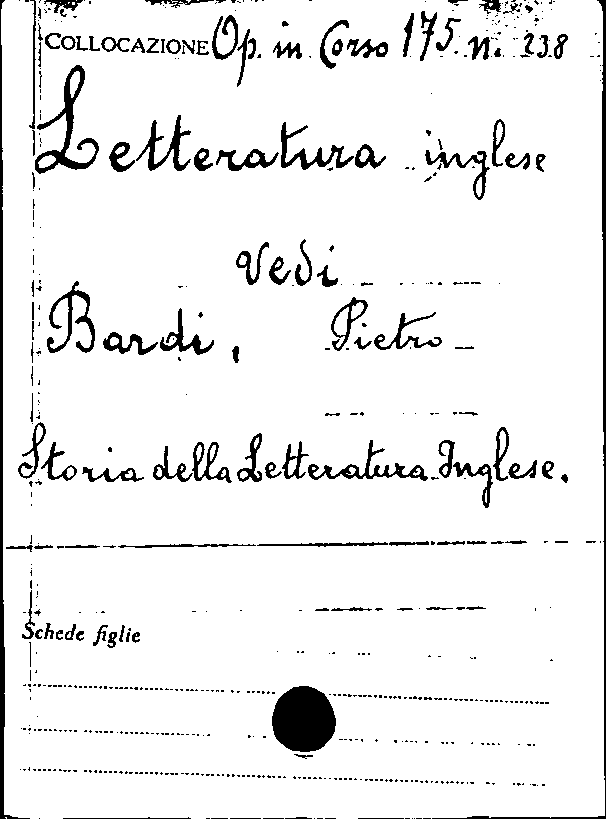 COLLOCAZIONE Op. in Corso 175. n. 238
Letteratura inglese
Vedi
Bardi, Pietro
Storia della Letteratura Inglese.
Schede figlie